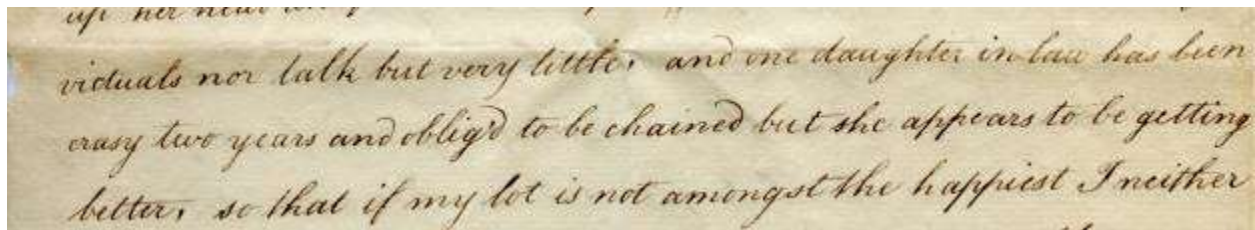 up her head
viduals nor talk but very little, and one daughter in law has been
crasy two years and oblig'd to be chained but she appears to be getting
better, so that if my lot is not amongst the happiest I neither